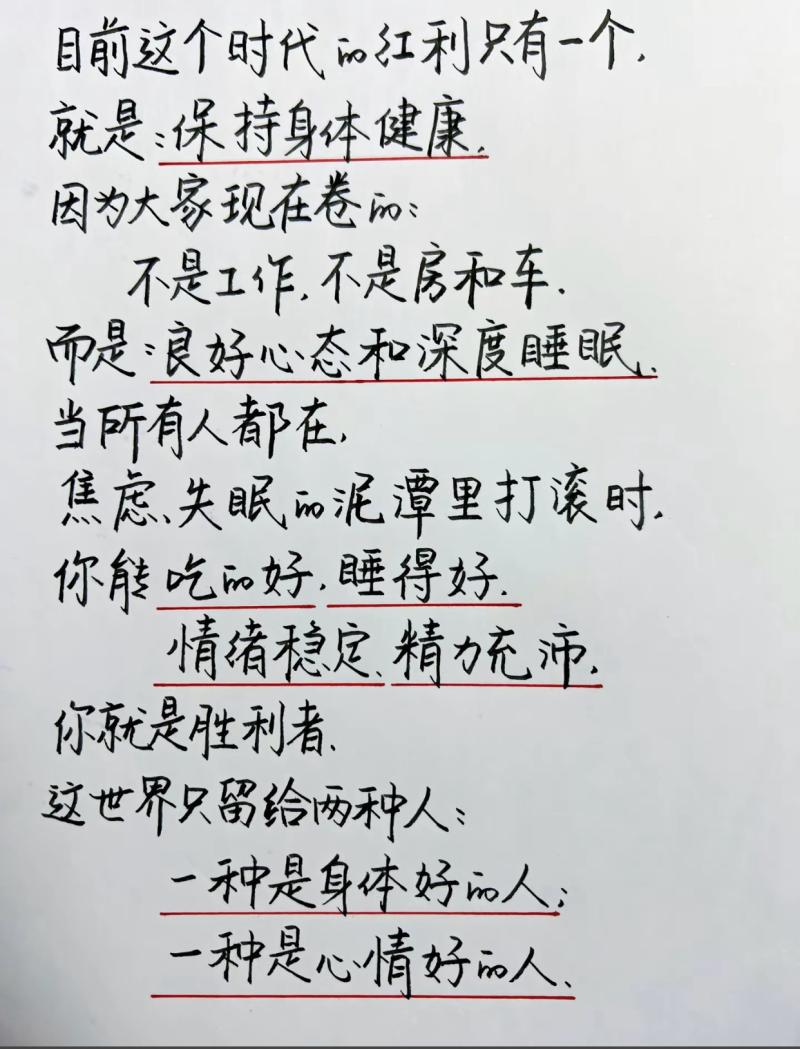 目前这个时代的红利只有一个,
就是:保持身体健康.
因为大家现在卷的:
不是工作,不是房和车.
而是:良好心态和深度睡眠.
当所有人都在,
焦虑、失眠的泥潭里打滚时,
你能吃的好,睡得好.
情绪稳定、精力充沛,
你就是胜利者.
这世界只留给两种人:
一种是身体好的人;
一种是心情好的人.